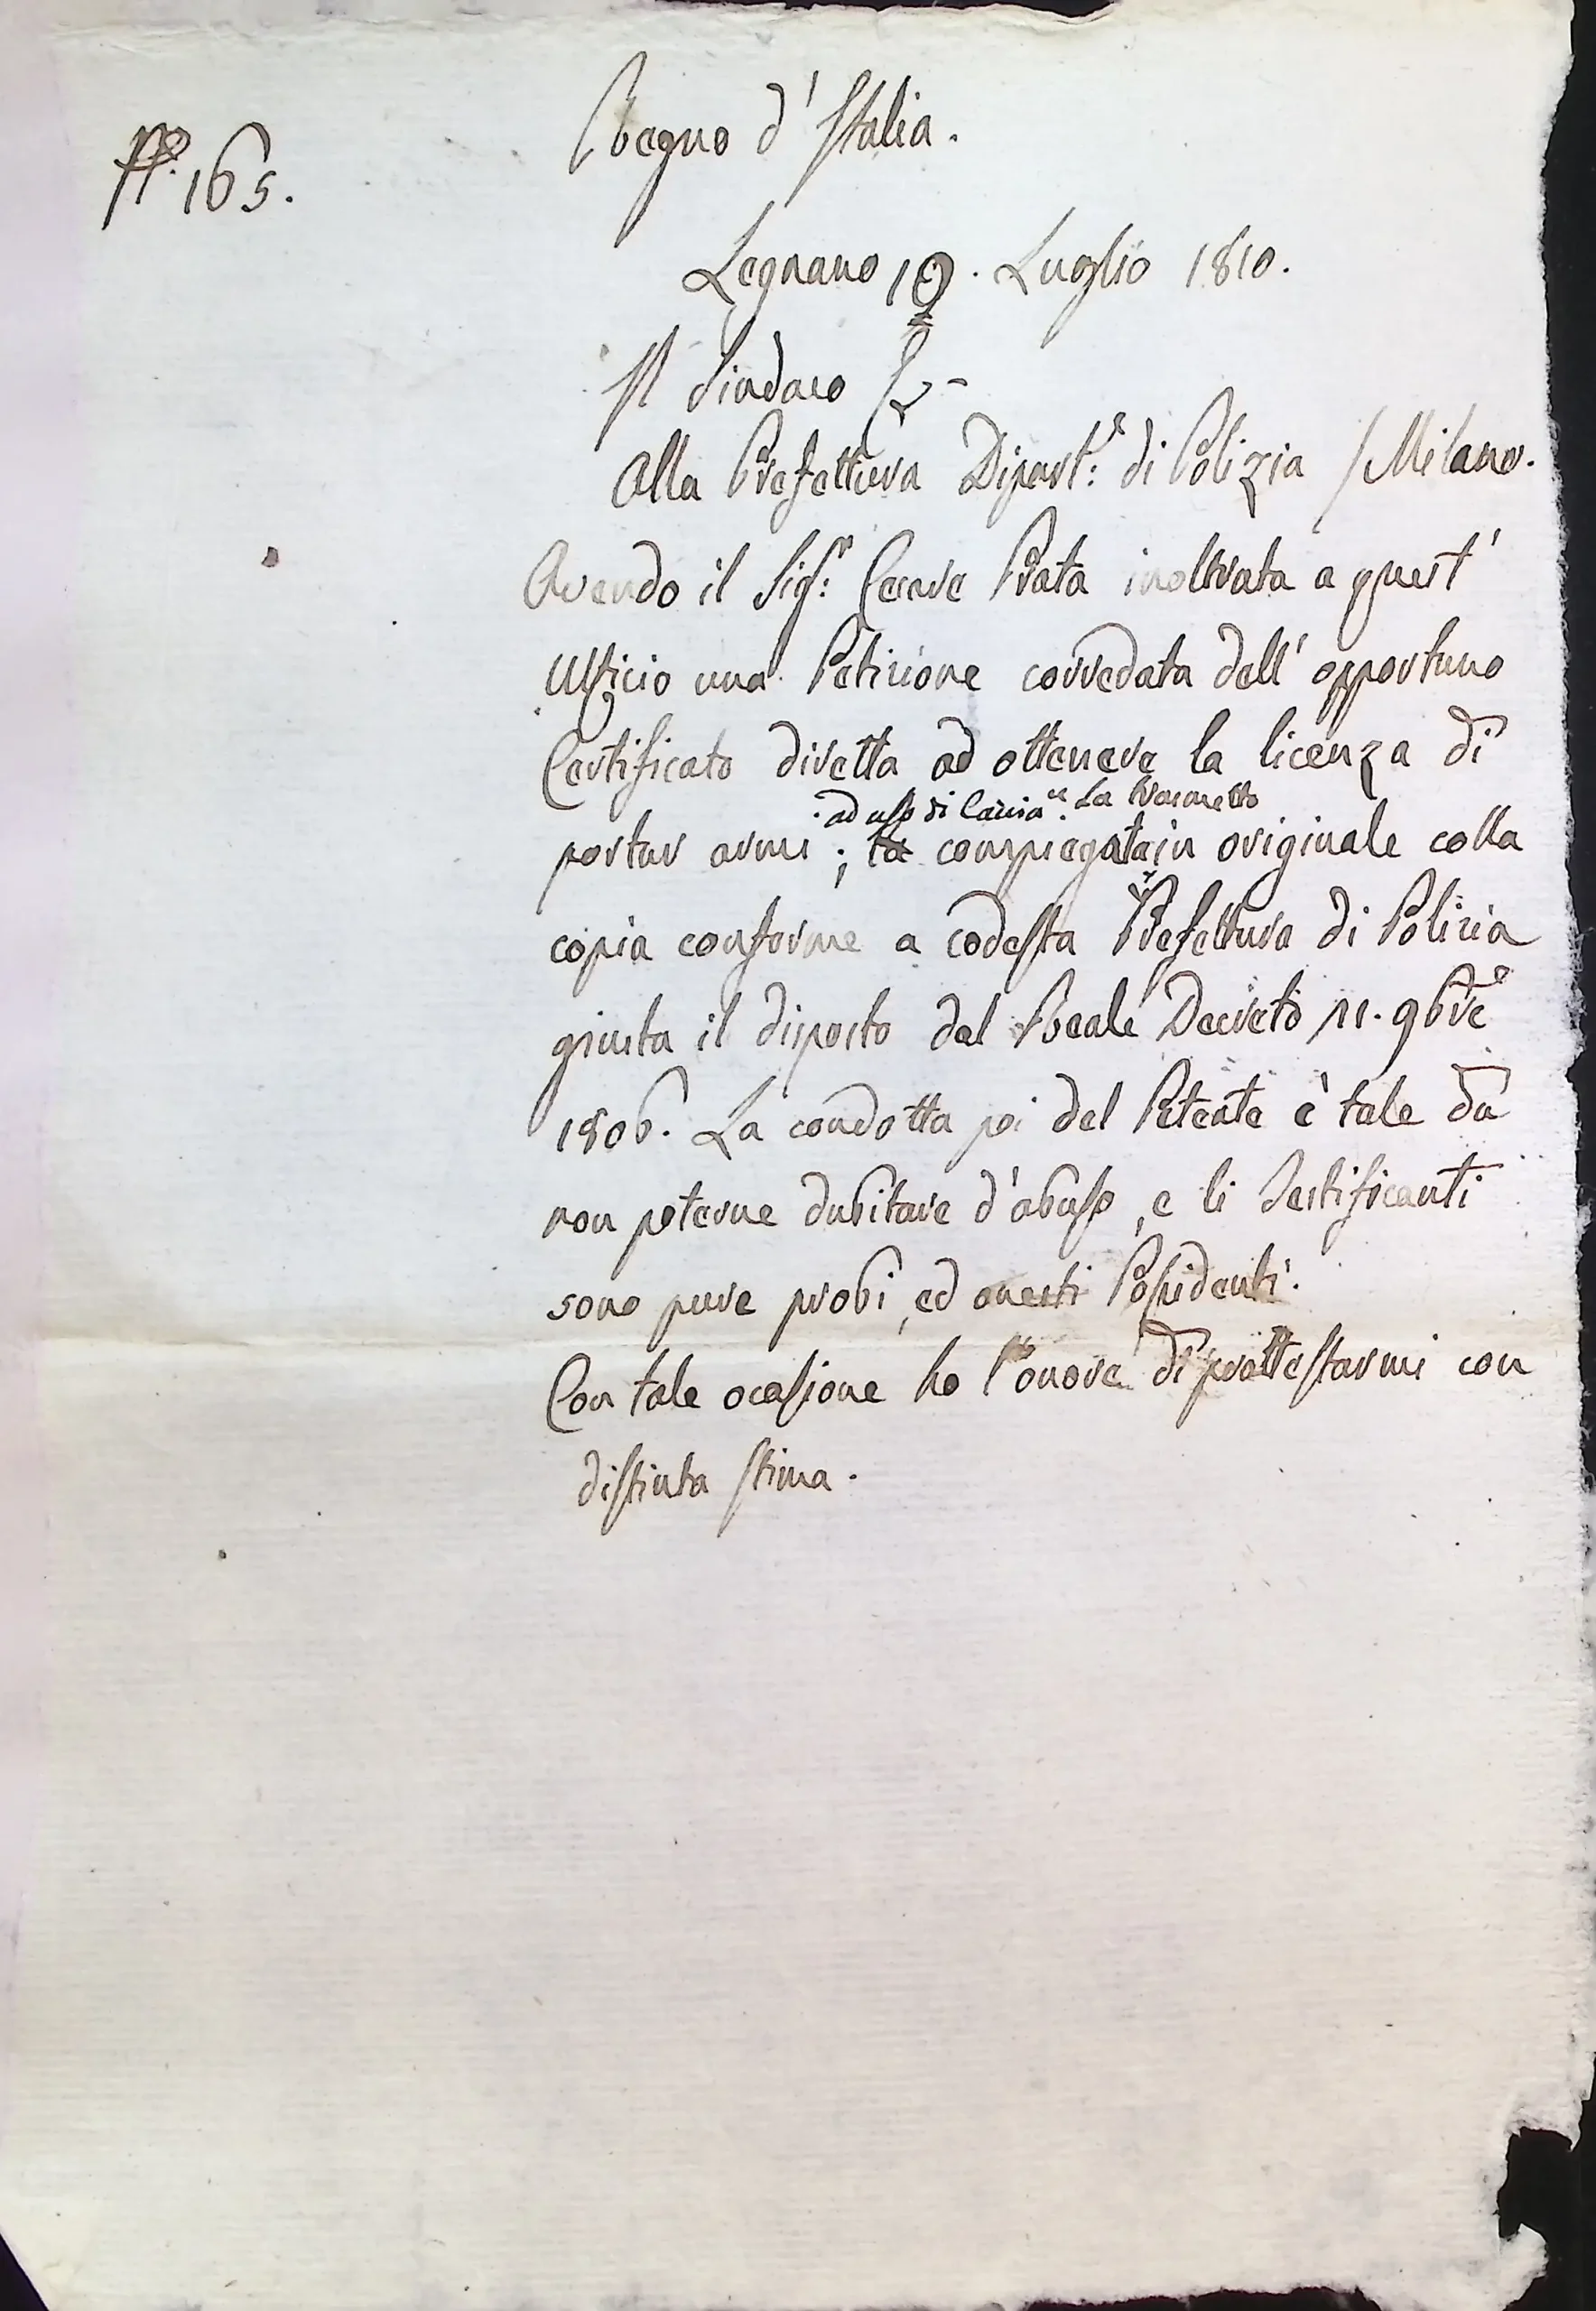 N.º 165.
Regno d'Italia.
Legnano 19. Luglio 1810.
Il Sindaco
Alla Prefettura Dipart.e: di Polizia / Milano.
Avendo il Sig.r: Cesare Prata inoltrata a quest'
Ufficio una Petizione corredata dell'opportuno
Certificato diretta ad ottenere la licenza di
ad uso di Caccia. La trasmetto
portar armi; la compiegata in originale colla
copia conforme a codesta Prefettura di Polizia
giusta il disposto del Reale Decreto 11. 9bre
1806. La condotta poi del Petente è tale da
non poterne dubitare d'abuso, e li Testificanti
sono pure probi, ed onesti Possidenti.
Con tale ocasione ho l'onore di prottestarmi con
distinta stima.